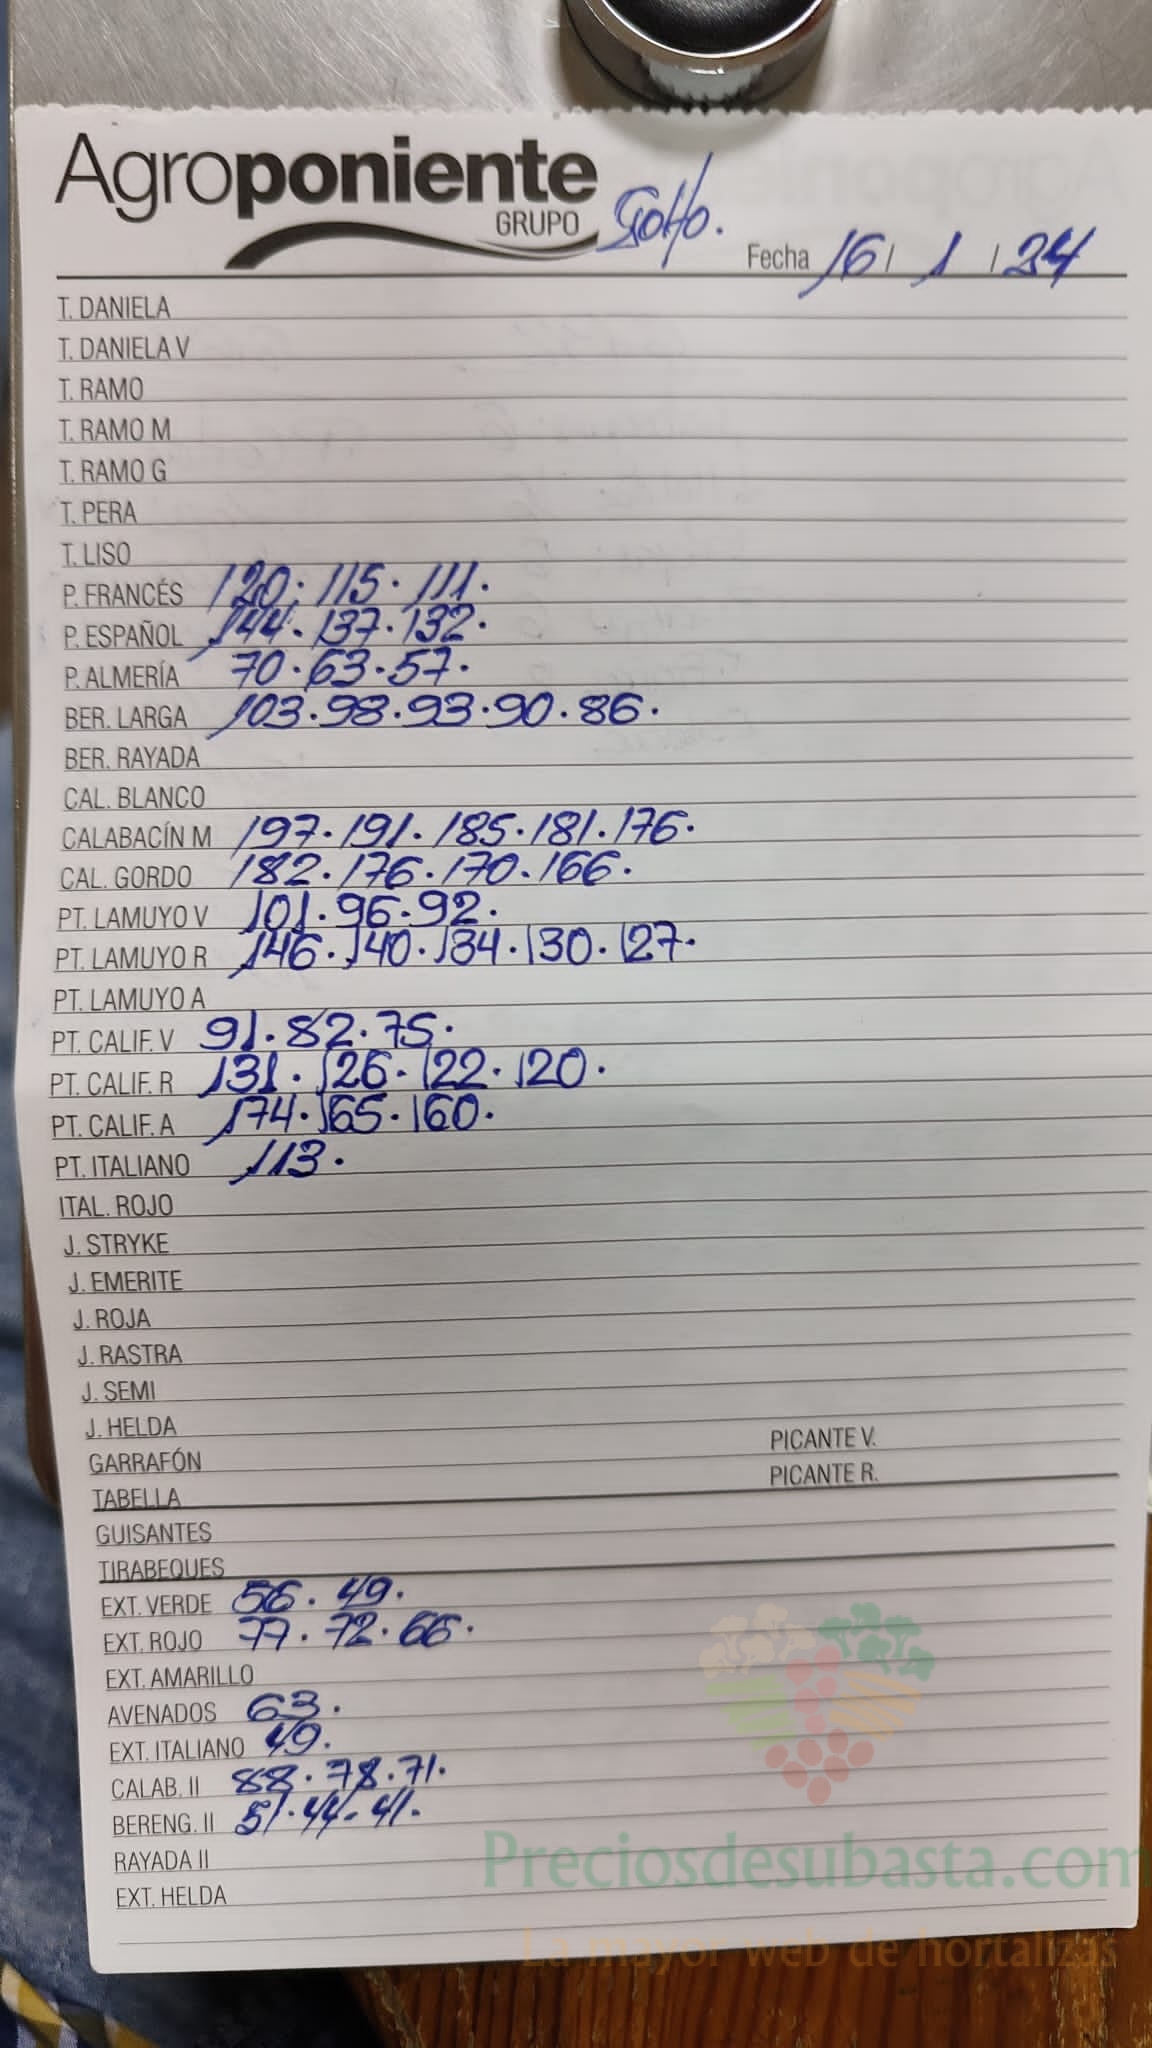 Agroponiente
GRUPO
Golfo.
Fecha 16 / 1 / 24
T. DANIELA
T. DANIELA V
T. RAMO
T. RAMO M
T. RAMO G
T. PERA
T. LISO
P. FRANCÉS 120. 115. 111.
P. ESPAÑOL 144. 137. 132.
P. ALMERÍA 70. 63. 57.
BER. LARGA 103. 98. 93. 90. 86.
BER. RAYADA
CAL. BLANCO
CALABACÍN M 197. 191. 185. 181. 176.
CAL. GORDO 182. 176. 170. 166.
PT. LAMUYO V 101. 96. 92.
PT. LAMUYO R 146. 140. 134. 130. 127.
PT. LAMUYO A
PT. CALIF. V 91. 82. 75.
PT. CALIF. R 131. 126. 122. 120.
PT. CALIF. A 174. 165. 160.
PT. ITALIANO 113.
ITAL. ROJO
J. STRYKE
J. EMERITE
J. ROJA
J. RASTRA
J. SEMI
J. HELDA
GARRAFÓN PICANTE V.
TABELLA PICANTE R.
GUISANTES
TIRABEQUES
EXT. VERDE 56. 49.
EXT. ROJO 77. 72. 66.
EXT. AMARILLO
AVENADOS 63.
EXT. ITALIANO 49.
CALAB. II 88. 78. 71.
BERENG. II 51. 44. 41.
RAYADA II
EXT. HELDA
Preciosdesubasta.com
La mayor web de hortalizas